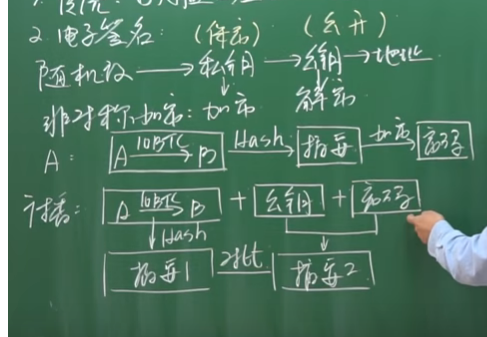 2. 电子签名: (保密) (公开)
随机数 → 私钥 → 公钥 → 地址
非对称加密: 加密 解密
A: A 10BTC→ B Hash→ 摘要 加密→ 密码
传播: A 10BTC→ B + 公钥 + 密码
↓Hash ↓
摘要1 对比 摘要2